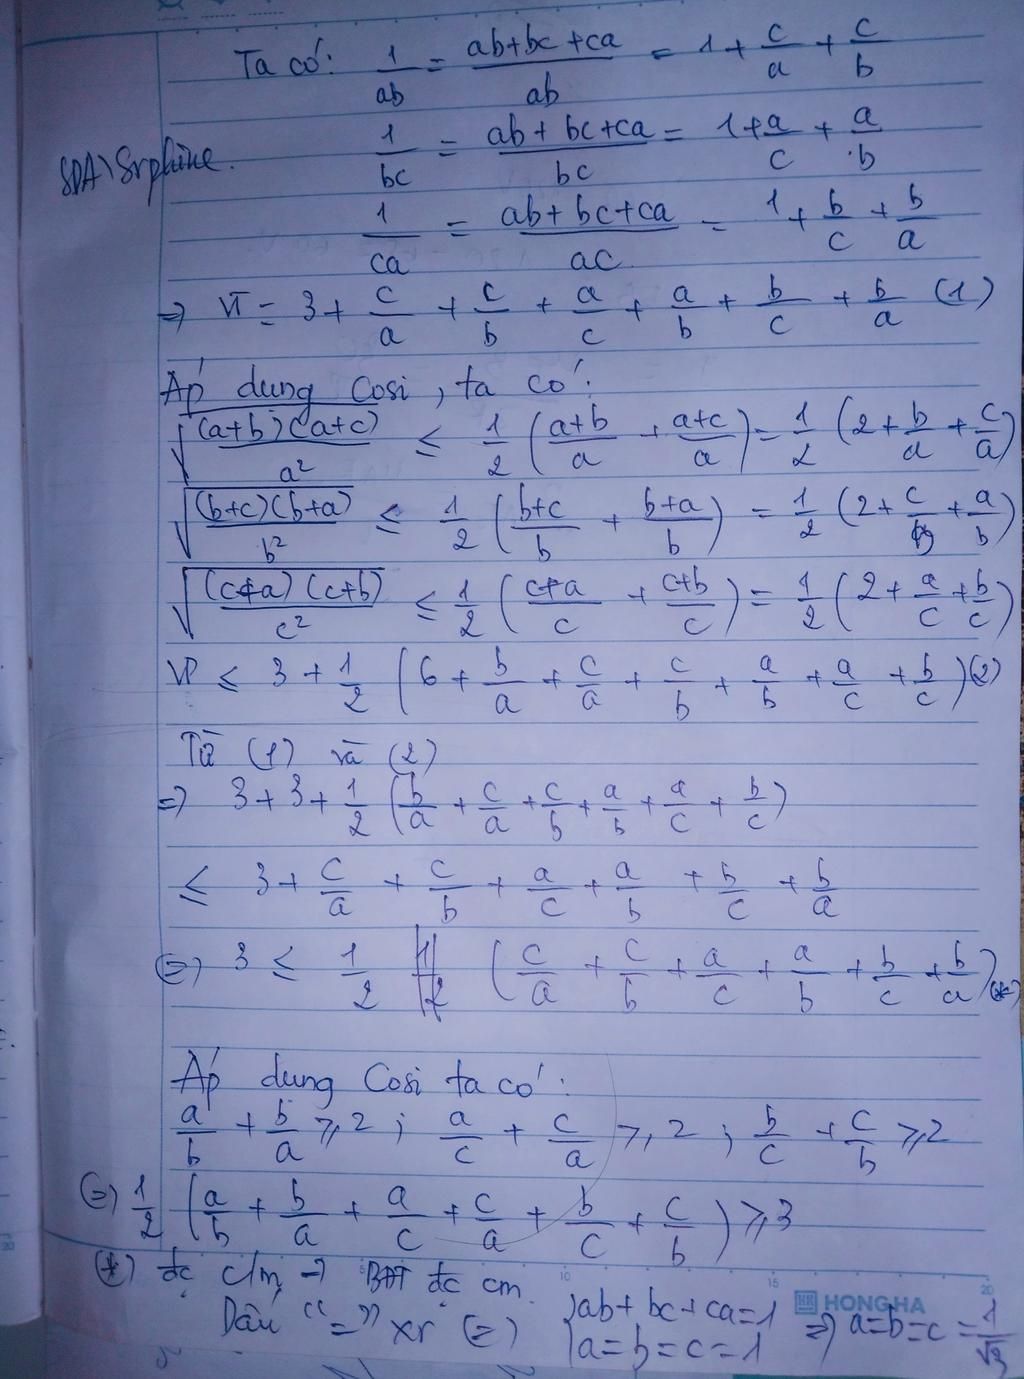 Ta có: 1/ab = (ab+bc+ca)/ab = 1 + c/a + c/b
1/bc = (ab+bc+ca)/bc = 1 + a/c + a/b
1/ca = (ab+bc+ca)/ac = 1 + b/c + b/a
=> VT = 3 + c/a + c/b + a/c + a/b + b/c + b/a (1)
Áp dụng Cosi, ta có:
√((a+b)(a+c)/a²) ≤ 1/2 ((a+b)/a + (a+c)/a) = 1/2 (2 + b/a + c/a)
√((b+c)(b+a)/b²) ≤ 1/2 ((b+c)/b + (b+a)/b) = 1/2 (2 + c/b + a/b)
√((c+a)(c+b)/c²) ≤ 1/2 ((c+a)/c + (c+b)/c) = 1/2 (2 + a/c + b/c)
VP ≤ 3 + 1/2 (6 + b/a + c/a + c/b + a/b + a/c + b/c) (2)
Từ (1) và (2)
=> 3 + 3 + 1/2 (b/a + c/a + c/b + a/b + a/c + b/c)
≤ 3 + c/a + c/b + a/c + a/b + b/c + b/a
(=) 3 ≤ 1/2 (c/a + c/b + a/c + a/b + b/c + b/a) (*)
Áp dụng Cosi ta có:
a/b + b/a ≥ 2 ; a/c + c/a ≥ 2 ; b/c + c/b ≥ 2
(=) 1/2 (a/b + b/a + a/c + c/a + b/c + c/b) ≥ 3
(*) đc c/m => BĐT đc cm.
Dấu "=" xr (=) { ab+bc+ca=1
a=b=c=1 => a=b=c = 1/√3
HONGHA
10
15
20